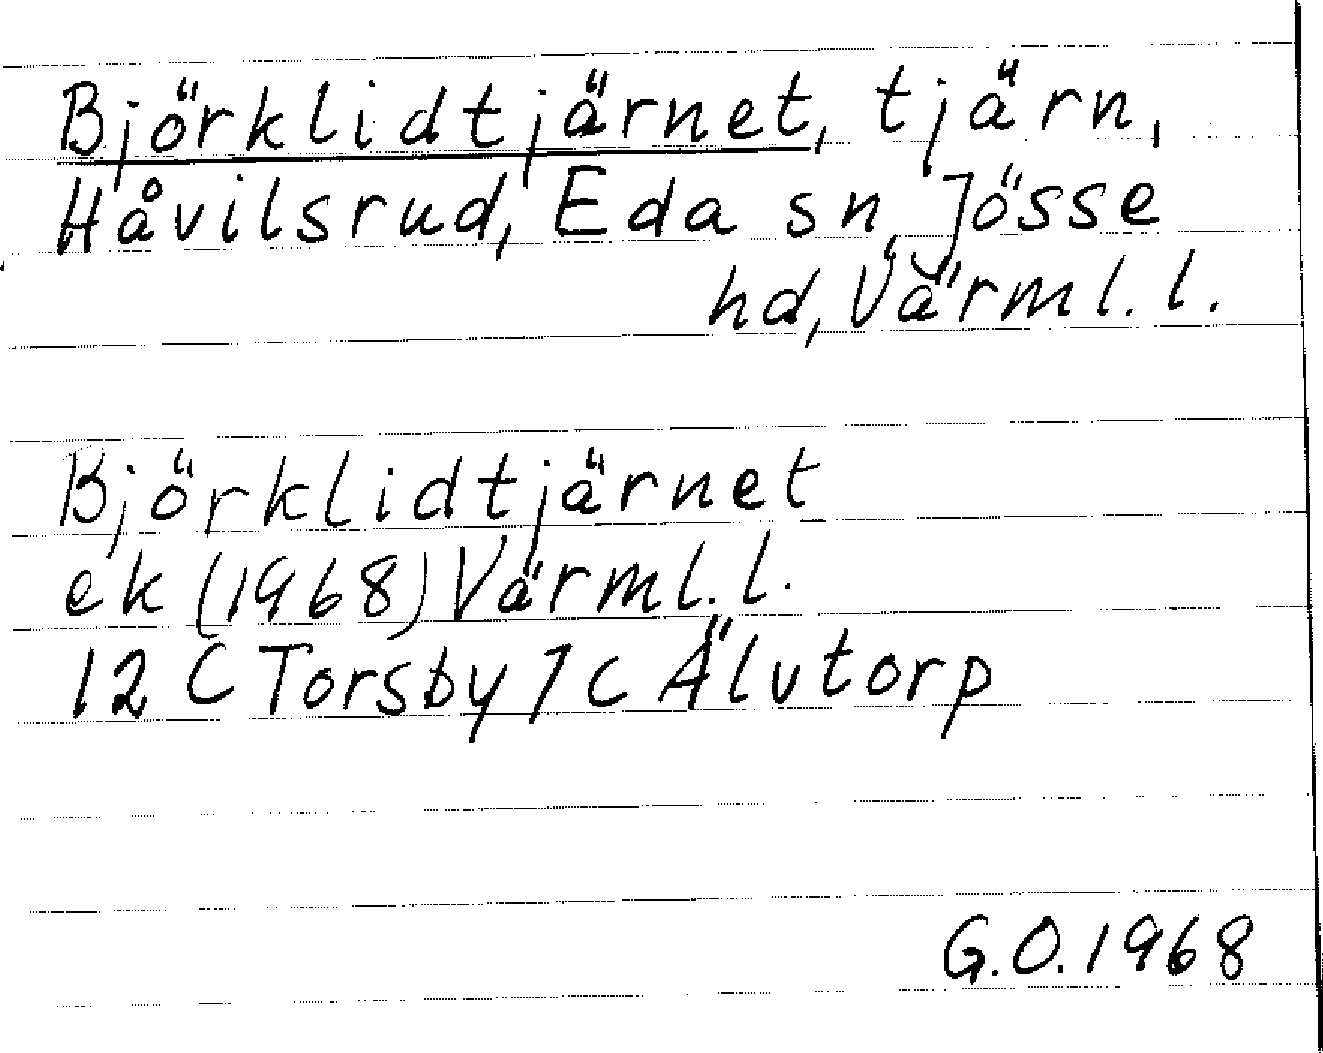 Björklidtjärnet, tjärn,
Håvilsrud, Eda sn, Jösse
hd, Värml. l.
Björklidtjärnet
ek (1968) Värml. l.
12 C Torsby 7 c Älvtorp
G.O. 1968